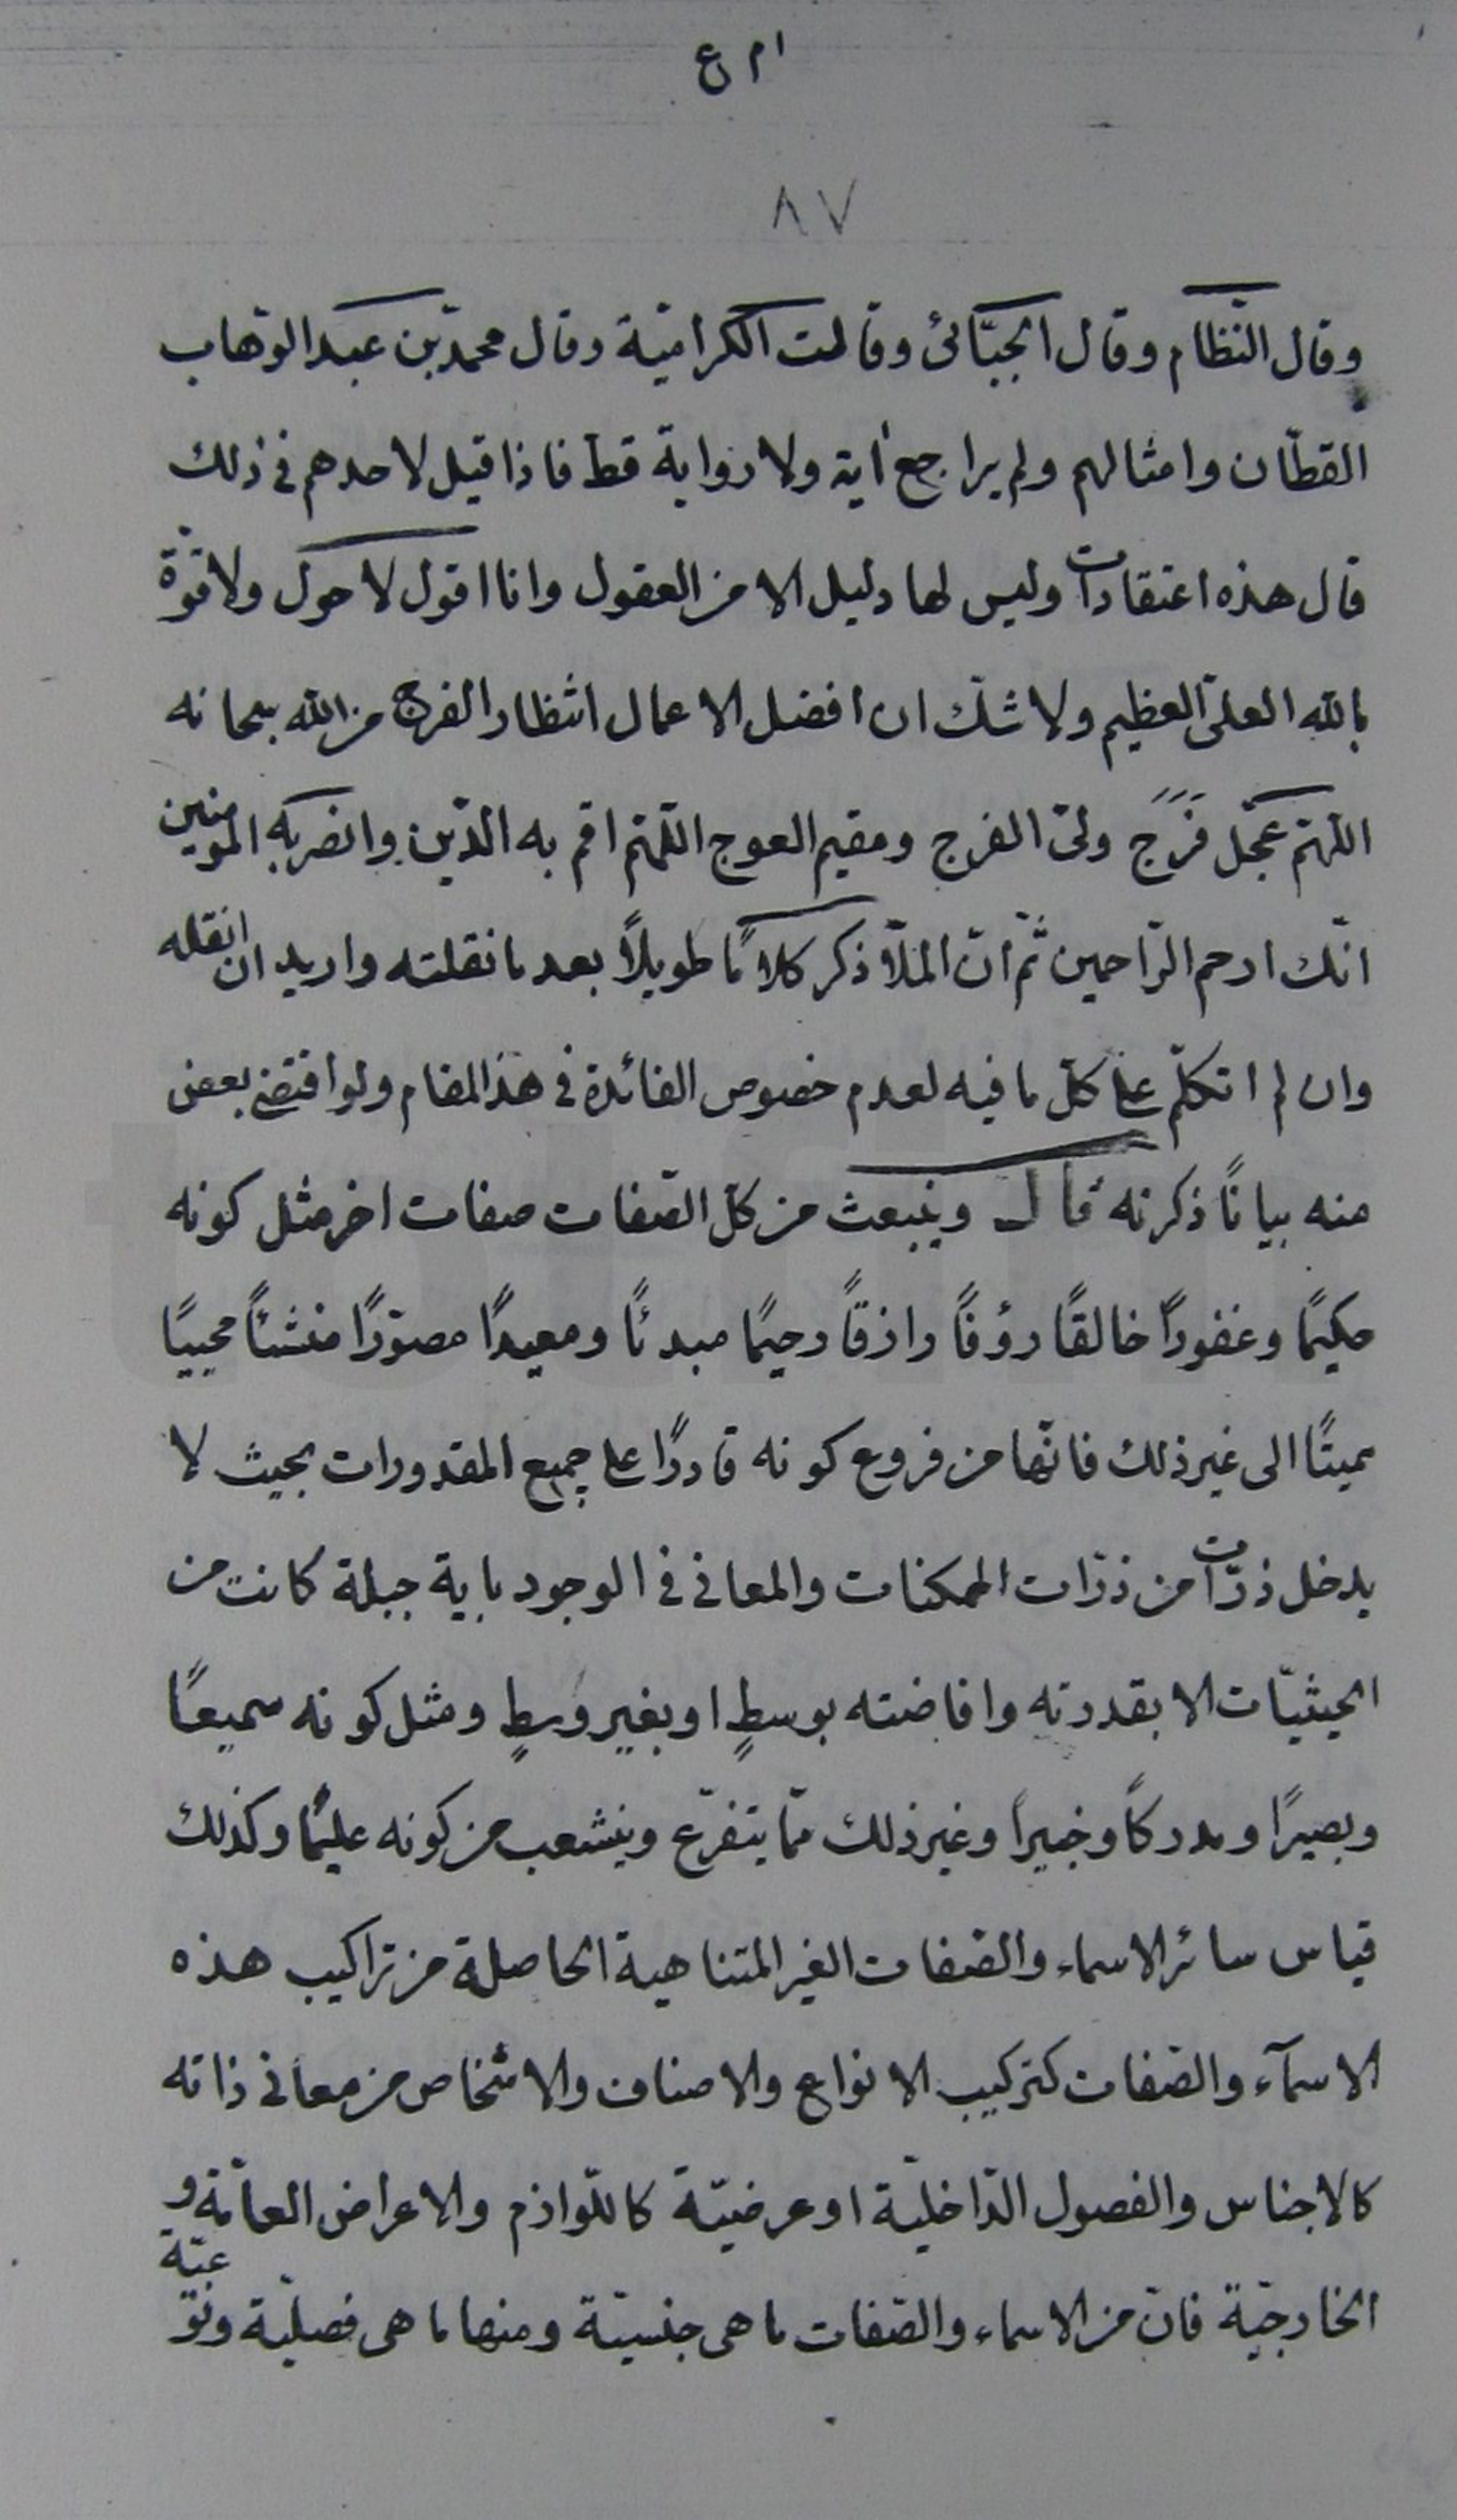 ٨٧
وقال النّظام وقال الجبّائئ وقالت الكراميّة وقال محمد بن عبد الوهاب
القطّان وامثالهم ولم يراجع آية ولا رواية قط فاذا قيل لاحدهم فى ذلك
قال هذه اعتقادات وليس لها دليل الا من العقول وانا اقول لا حول ولا قوّة
بالله العلىّ العظيم ولا شكّ ان افضل الاعمال انتظار الفرج من الله سبحانه
اللّهمّ عجّل فَرَجَ ولىّ الفرج ومقيم العوج اللّهمّ اقم به الدّين وانصر به المومنين
انّك ارحم الرّاحمين ثمّ انّ الملّا ذكر كلامًا طويلاً بعد ما نقلته واريد ان انقله
وان لم اتكلّم على كلّ ما فيه لعدم خصوص الفائدة فى هذ المقام ولو اقتضى بعض
منه بيانًا ذكرته قال وينبعث من كل الصّفات صفات اخر مثل كونه
حكيمًا وغفورًا خالقًا رؤفًا رازقًا رحيمًا مبدئًا ومعيدًا مصوّرًا منشئًا محييًا
مميتًا الى غير ذلك فانّها من فروع كونه قادرًا على جميع المقدورات بحيث لا
يدخل ذرّات من ذرّات الممكنات والمعانى فى الوجود باية جبلة كانت من
الحيثيّات الا بقدرته وافاضته بوسطٍ او بغير وسطٍ ومثل كونه سميعًا
وبصيرًا ومدركًا وخبيرًا وغير ذلك ممّا يتفرّع وينشعب من كونه عليمًا وكذلك
قياس سائر الاسماء والصّفات الغير المتناهية الحاصلة من تراكيب هذه
الاسمآء والصّفات كتركيب الانواع والاصناف والاشخاص من معانى ذاته
كالاجناس والفصول الدّاخليّة او عرضيّة كاللّوازم والاعراض العامّة و
الخارجيّة فانّ من الاسماء والصّفات ما هى جنسيّة ومنها ما هى فصليّة ونوعيّة